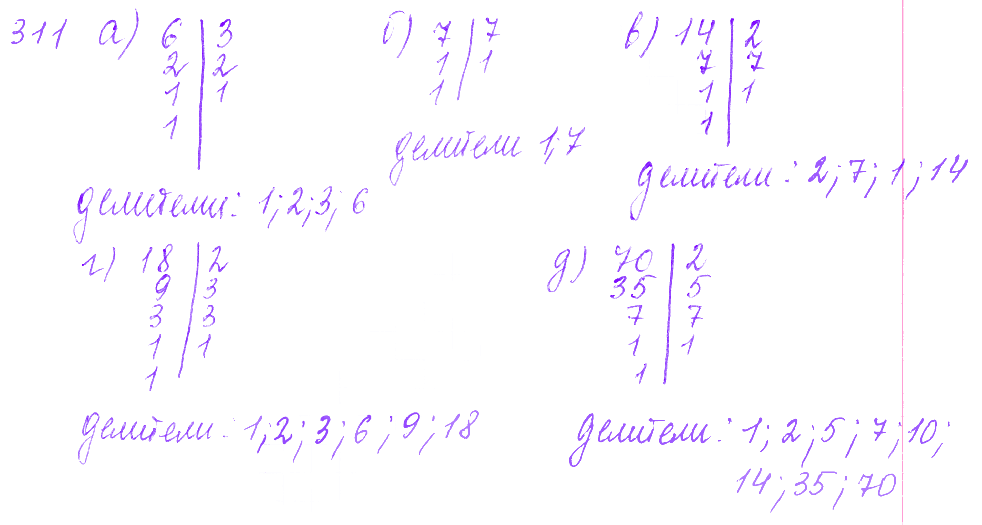 311 а) 6 | 3 б) 7 | 7 в) 14 | 2
2 | 2 1 | 1 7 | 7
1 | 1 1 | 1 | 1
1 | 1 |
делители 1;7
делители: 2;7;1;14
делители: 1;2;3;6
г) 18 | 2 д) 70 | 2
9 | 3 35 | 5
3 | 3 7 | 7
1 | 1 1 | 1
1 1 |
делители: 1;2;3;6;9;18 делители: 1;2;5;7;10;
14;35;70